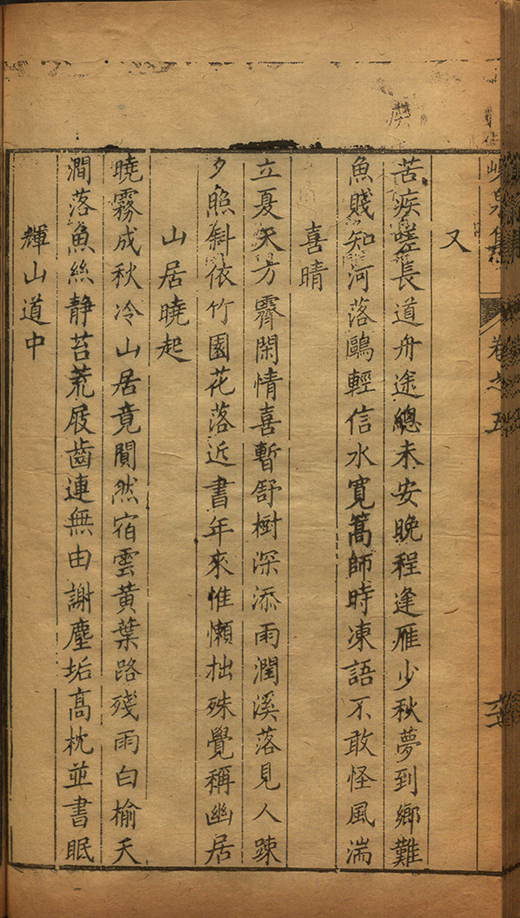 又
苦疾嗟長道舟途總未安晚程逢雁少秋夢到鄉難
魚賤知河落鷗輕信水寬篙師時凍語不敢怪風湍
喜晴
立夏天方霽閑情喜暫舒樹深添雨潤溪落見人踈
夕照斜依竹園花落近書年來惟懶拙殊覺稱幽居
山居曉起
曉霧成秋冷山居竟閴然宿雲黄葉路殘雨白榆天
澗落魚絲静苔荒屐齒連無由謝塵垢高枕並書眠
輝山道中
卷之五